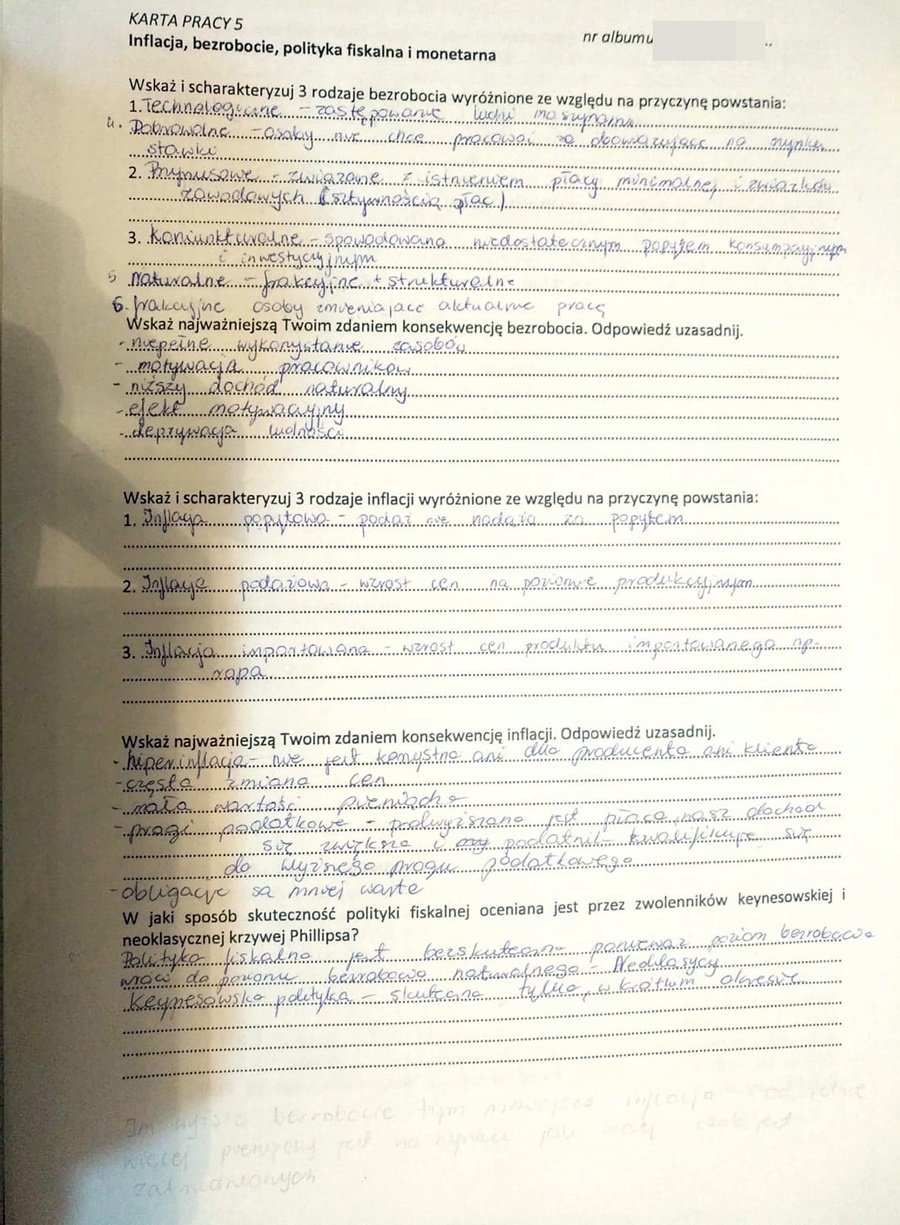 KARTA PRACY 5
nr albumu
Inflacja, bezrobocie, polityka fiskalna i monetarna
Wskaż i scharakteryzuj 3 rodzaje bezrobocia wyróżnione ze względu na przyczynę powstania:
1. Technologiczne - zastępowanie ludzi maszynami
4. Dobrowolne - osoby nie chce pracować za obowiązujące na rynku
stawki
2. Przymusowe - związane z istnieniem płacy minimalnej i związków
zawodowych (sztywnością płac)
3. Koniunkturalne - spowodowana niedostatecznym popytem konsumpcyjnym
i inwestycyjnym
5 naturalne - frakcyjne + strukturalne
6. frakcyjne osoby zmieniające aktualne pracę
Wskaż najważniejszą Twoim zdaniem konsekwencję bezrobocia. Odpowiedź uzasadnij.
- niepełne wykorzystanie zasobów
- motywacja pracowników
- niższy dochód naturalny
- efekt motywacyjny
- deprywacja ludności
Wskaż i scharakteryzuj 3 rodzaje inflacji wyróżnione ze względu na przyczynę powstania:
1. Inflacja popytowa - podaż nie nadąża za popytem
2. Inflacje podażowa - wzrost cen na poziomie produkcyjnym
3. Inflacja importowana - wzrost cen produktu importowanego np.
ropa
Wskaż najważniejszą Twoim zdaniem konsekwencję inflacji. Odpowiedź uzasadnij.
- hiperinflacja - nie jest korzystna ani dla producenta ani klienta
- częsta zmiana cen
- mała wartość pieniądza
- progi podatkowe - podwyższana jest płaca, nasz dochód
się zwiększa i podatnik kwalifikuje się
do wyższego progu podatkowego
- obligacje są mniej warte
W jaki sposób skuteczność polityki fiskalnej oceniana jest przez zwolenników keynesowskiej i
neoklasycznej krzywej Phillipsa?
Polityka fiskalna jest bezskuteczna ponieważ poziom bezrobocia
wróci do poziomu bezrobocia naturalnego - Neoklasycy
Keynesowska polityka - skuteczna tylko w krótkim okresie
Im wyższe bezrobocie tym mniejsza inflacja
więcej pieniędzy jest na rynku jest
zatrudnionych